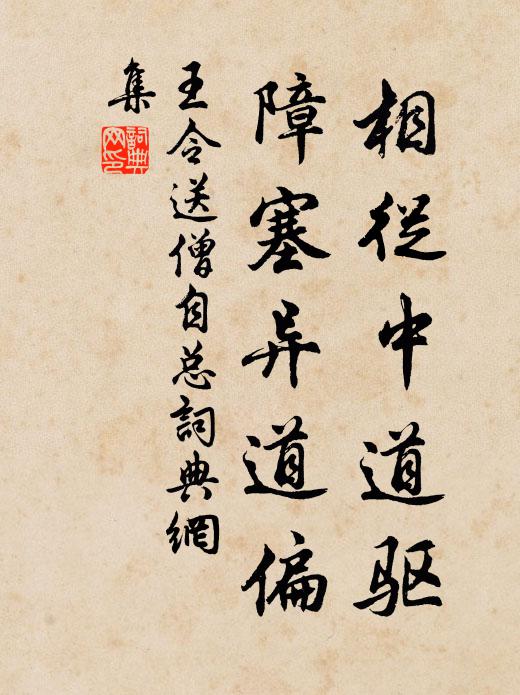 相從中道驱
障塞异道偏
王令送僧自总詞典網
集
詞典
网印